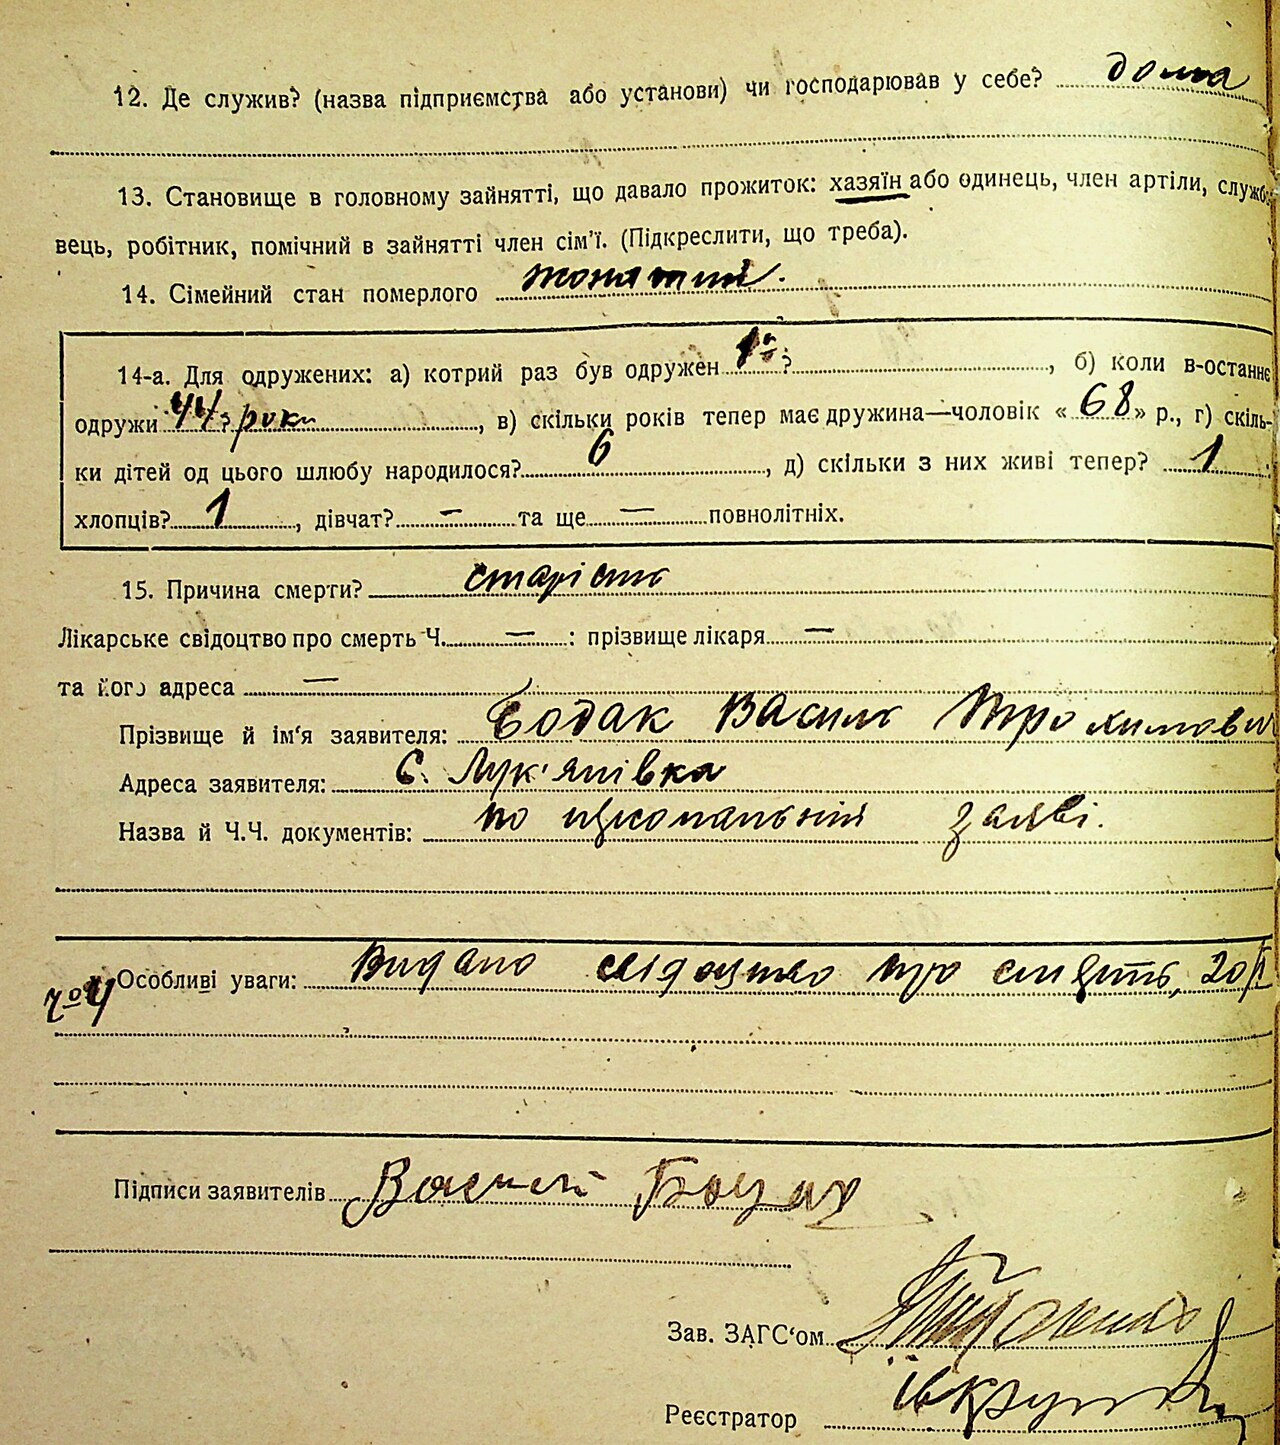 12. Де служив? (назва підприємства або установи) чи господарював у себе? дома
13. Становище в головному зайнятті, що давало прожиток: хазяїн або одинець, член артіли, службо-
вець, робітник, помічний в зайнятті член сім'ї. (Підкреслити, що треба).
14. Сімейний стан померлого жонатий.
14-а. Для одружених: а) котрий раз був одружен 1й ?, б) коли в-останнє
одружи 44 ? роки, в) скільки років тепер має дружина—чоловік « 68 » р., г) скіль-
ки дітей од цього шлюбу народилося? 6, д) скільки з них живі тепер? 1
хлопців? 1, дівчат? — та ще — повнолітніх.
15. Причина смерти? старість
Лікарське свідоцтво про смерть Ч. — : прізвище лікаря —
та його адреса —
Прізвище й ім'я заявителя: Бодак Василь Трохимович
Адреса заявителя: С. Лук'янівка
Назва й Ч.Ч. документів: по заяві.
Особливі уваги: Видано свідоцтво про смерть, 20/I
№ 4
Підписи заявителів Василь Бодак
Зав. ЗАГС'ом
Реєстратор